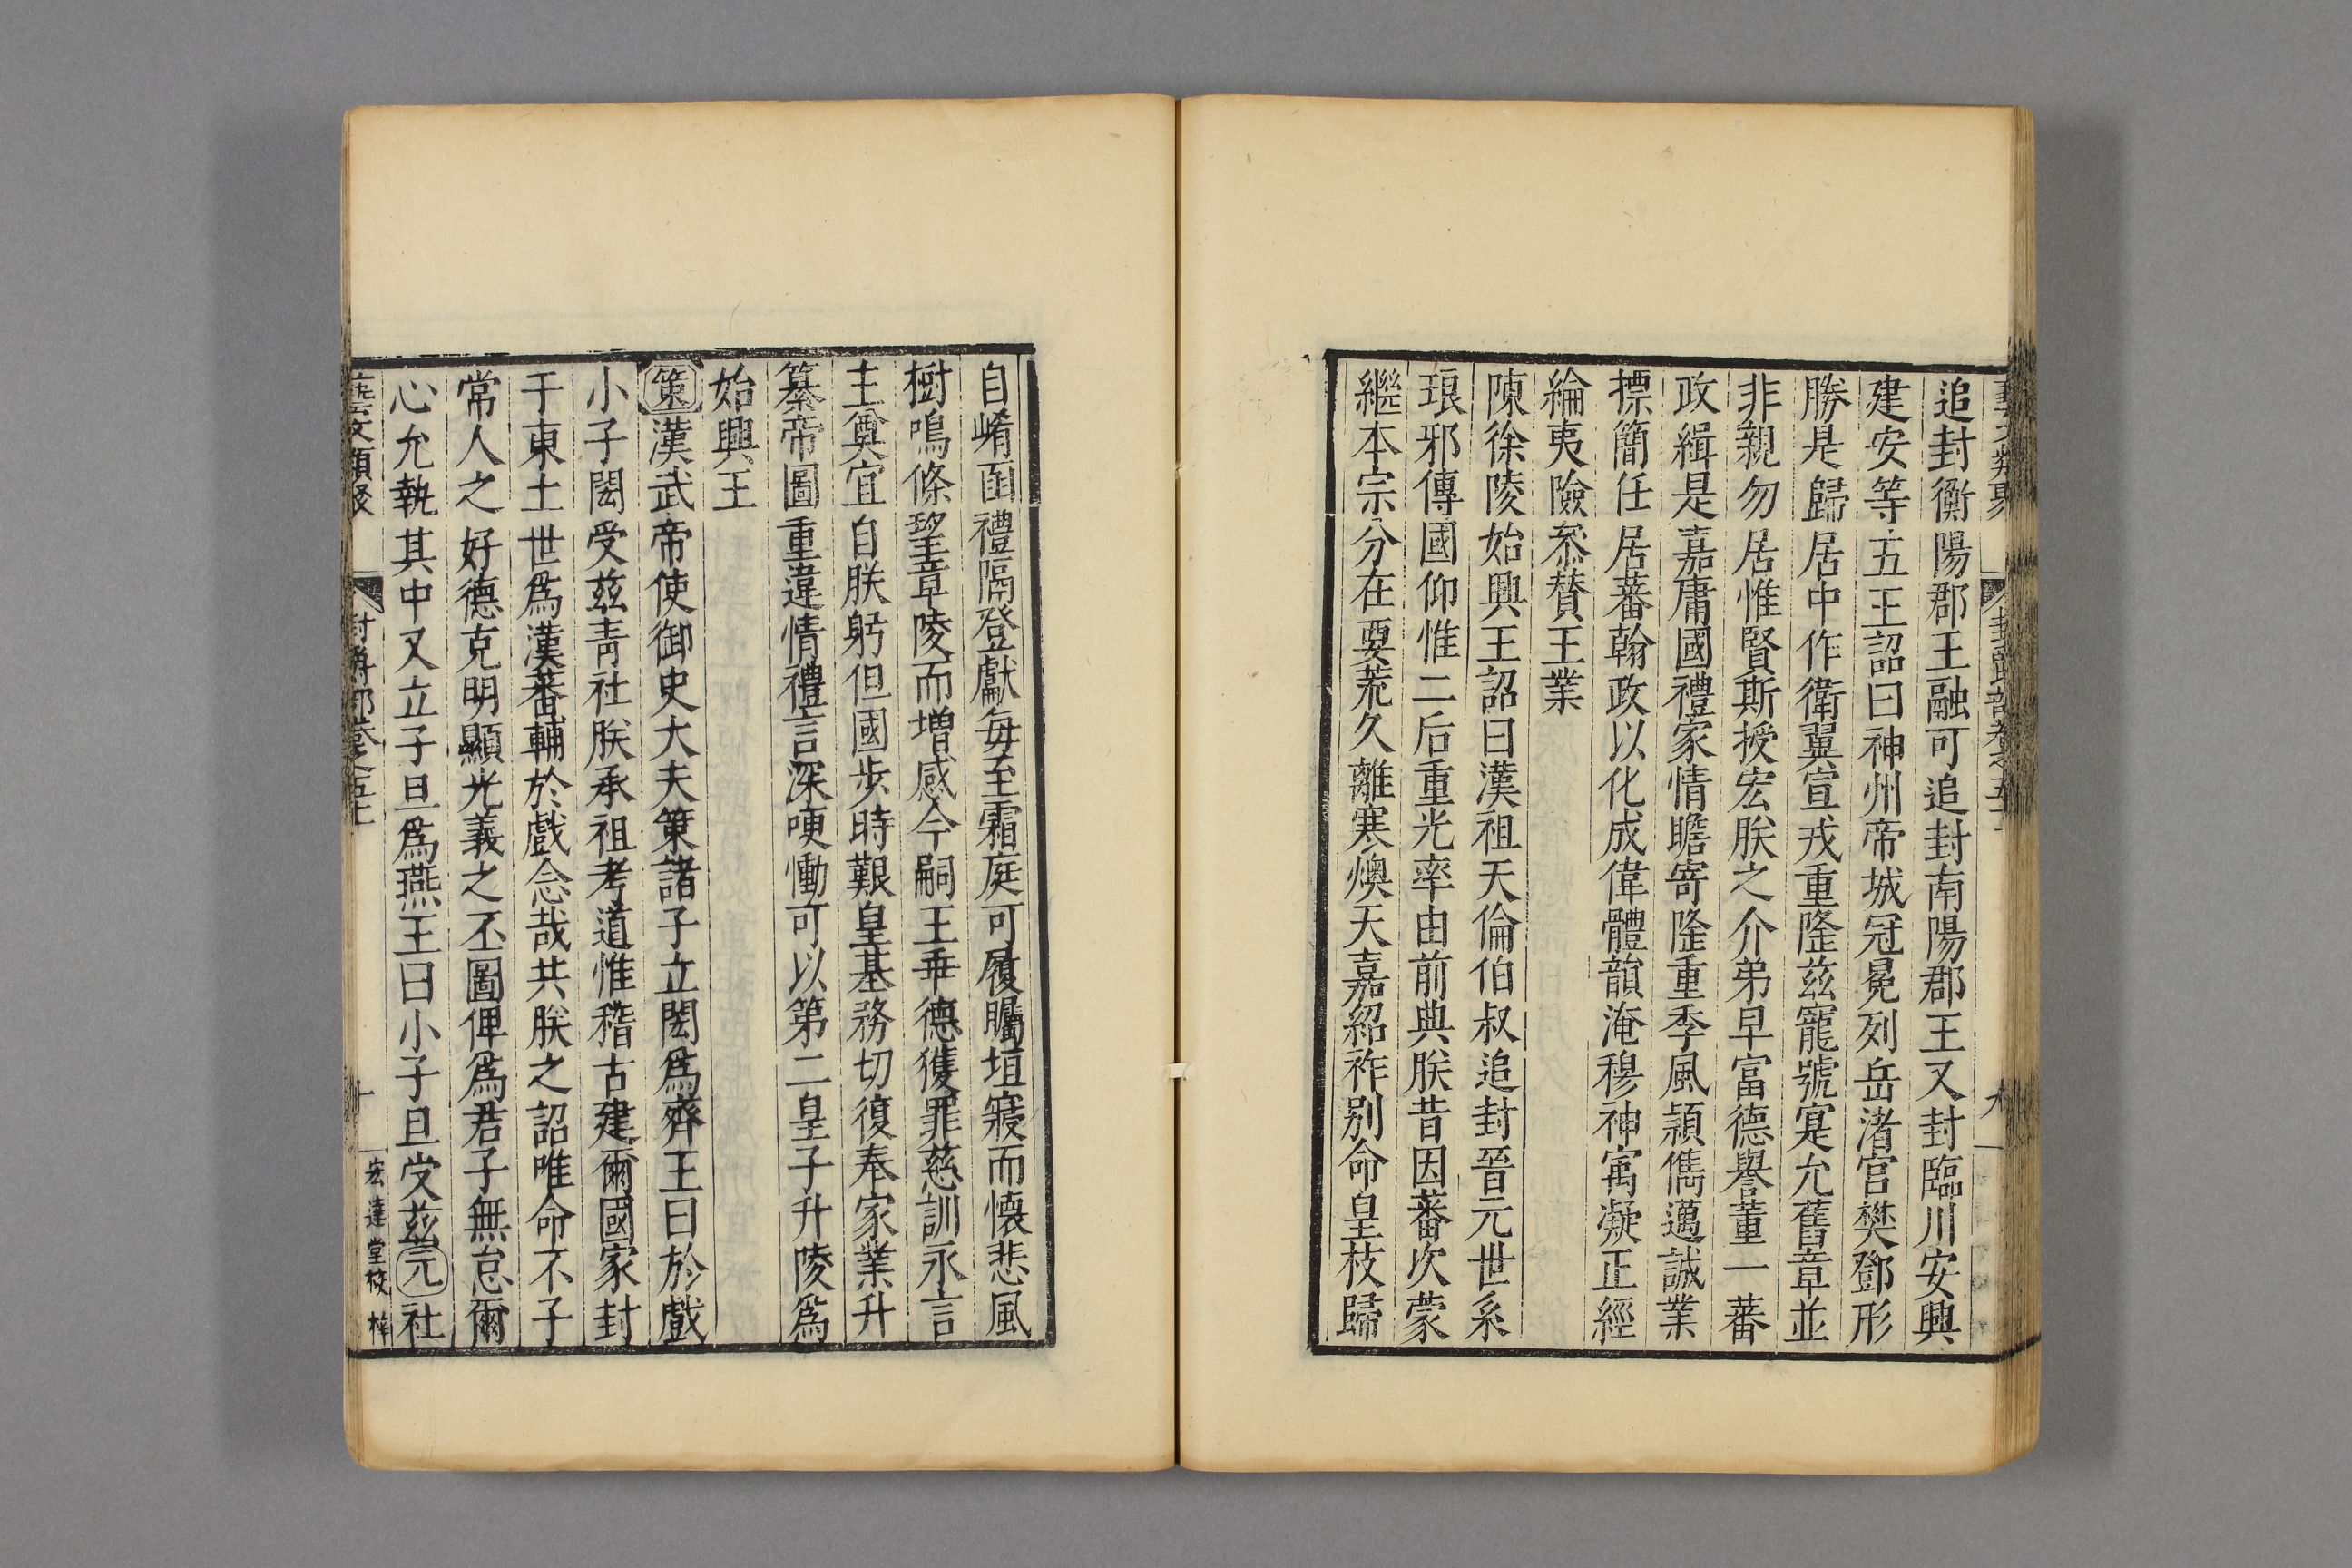 追封衡陽郡王融可追封南陽郡王又封臨川安興
建安等五王詔曰神州帝城冠冕列岳渚宮樊鄧形
勝是歸居中作衛翼宣戎重隆茲寵號寔允舊章並
非親勿居惟賢斯授宏朕之介弟早富德譽董一蕃
政緝是嘉庸國禮家情瞻寄隆重季風頴儁邁誠業
摽簡任居蕃翰政以化成偉體韻淹穆神㝢凝正經
綸夷險叅賛王業
陳徐陵始興王詔曰漢祖天倫伯叔追封晉元世系
琅邪傳國仰惟二后重光率由前典朕昔因蕃次蒙
繼本宗分在要荒久離寒燠天嘉紹祚别命皇枝歸
自崤函禮隔登獻每至霜庭可履矚垣寢而懷悲風
樹鳴條望章陵而增感今嗣王垂德獲罪慈訓永言
主奠宜自朕躬但國步時艱皇基務切復奉家業升
纂帝圖重違情禮言深哽慟可以第二皇子升陵爲
始興王
策漢武帝使御史大夫策諸子立閎爲齊王曰於戲
小子閎受茲靑社朕承祖考道惟稽古建爾國家封
于東土世爲漢蕃輔於戲念哉共朕之詔唯命不于
常人之好德克明顯光義之丕圖俾爲君子無怠爾
心允執其中又立子旦爲燕王曰小子旦受茲元社
藝文類聚 封爵部卷之五十一 十 宏達堂校梓